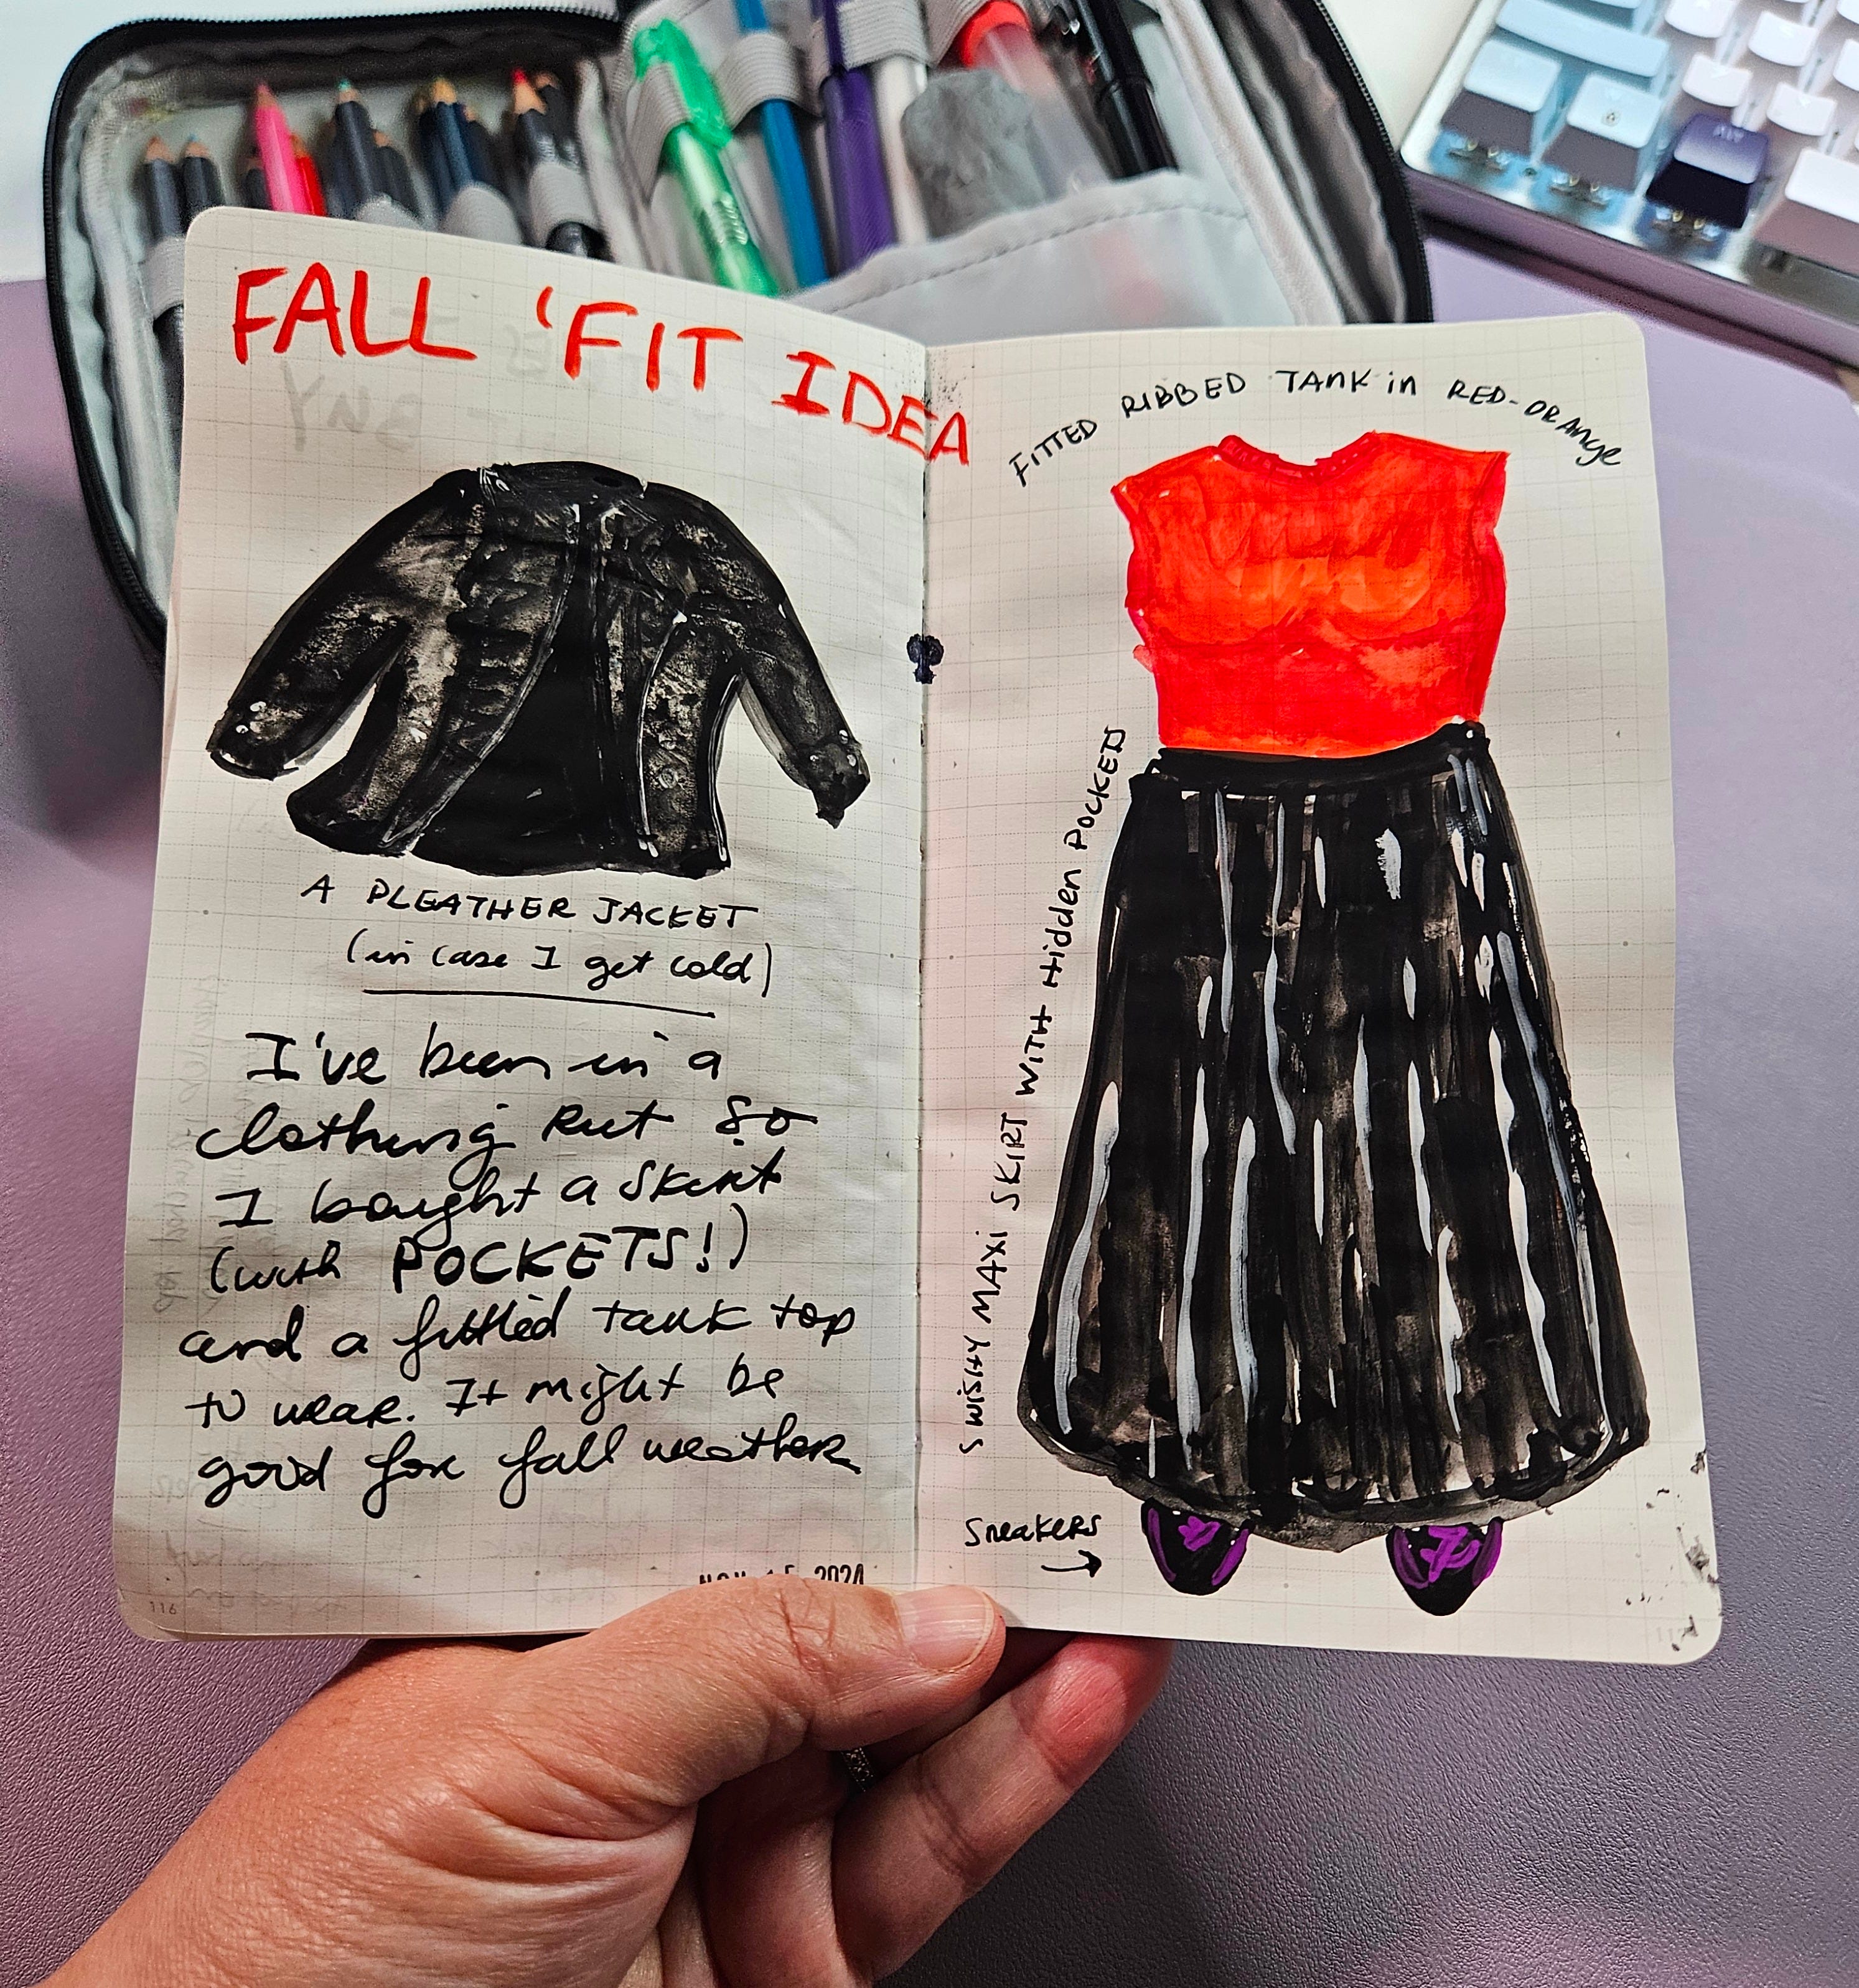 FALL 'FIT IDEA
A PLEATHER JACKET
(in case I get cold)
I've been in a
clothing rut so
I bought a skirt
(with POCKETS!)
and a fitted tank top
to wear. It might be
good for fall weather
2024
116
FITTED RIBBED TANK in RED-ORANGE
SWISHY MAXI SKIRT WITH Hidden POCKETS
Sneakers
→